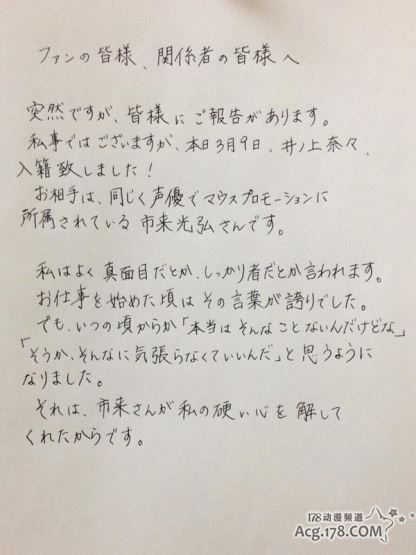 ファンの皆様、関係者の皆様へ
突然ですが、皆様にご報告があります。
私事ではございますが、本日3月9日、井ノ上奈々、
入籍致しました！
お相手は、同じく声優でマウスプロモーションに
所属されている市来光弘さんです。
私はよく真面目だとか、しっかり者だとか言われます。
お仕事を始めた頃はその言葉が誇りでした。
でも、いつの頃からか「本当はそんなことないんだけどな」
「そうか、そんなに気張らなくていいんだ」と思うように
なりました。
それは、市来さんが私の硬い心を解して
くれたからです。
178动漫频道
Acg.178.COM